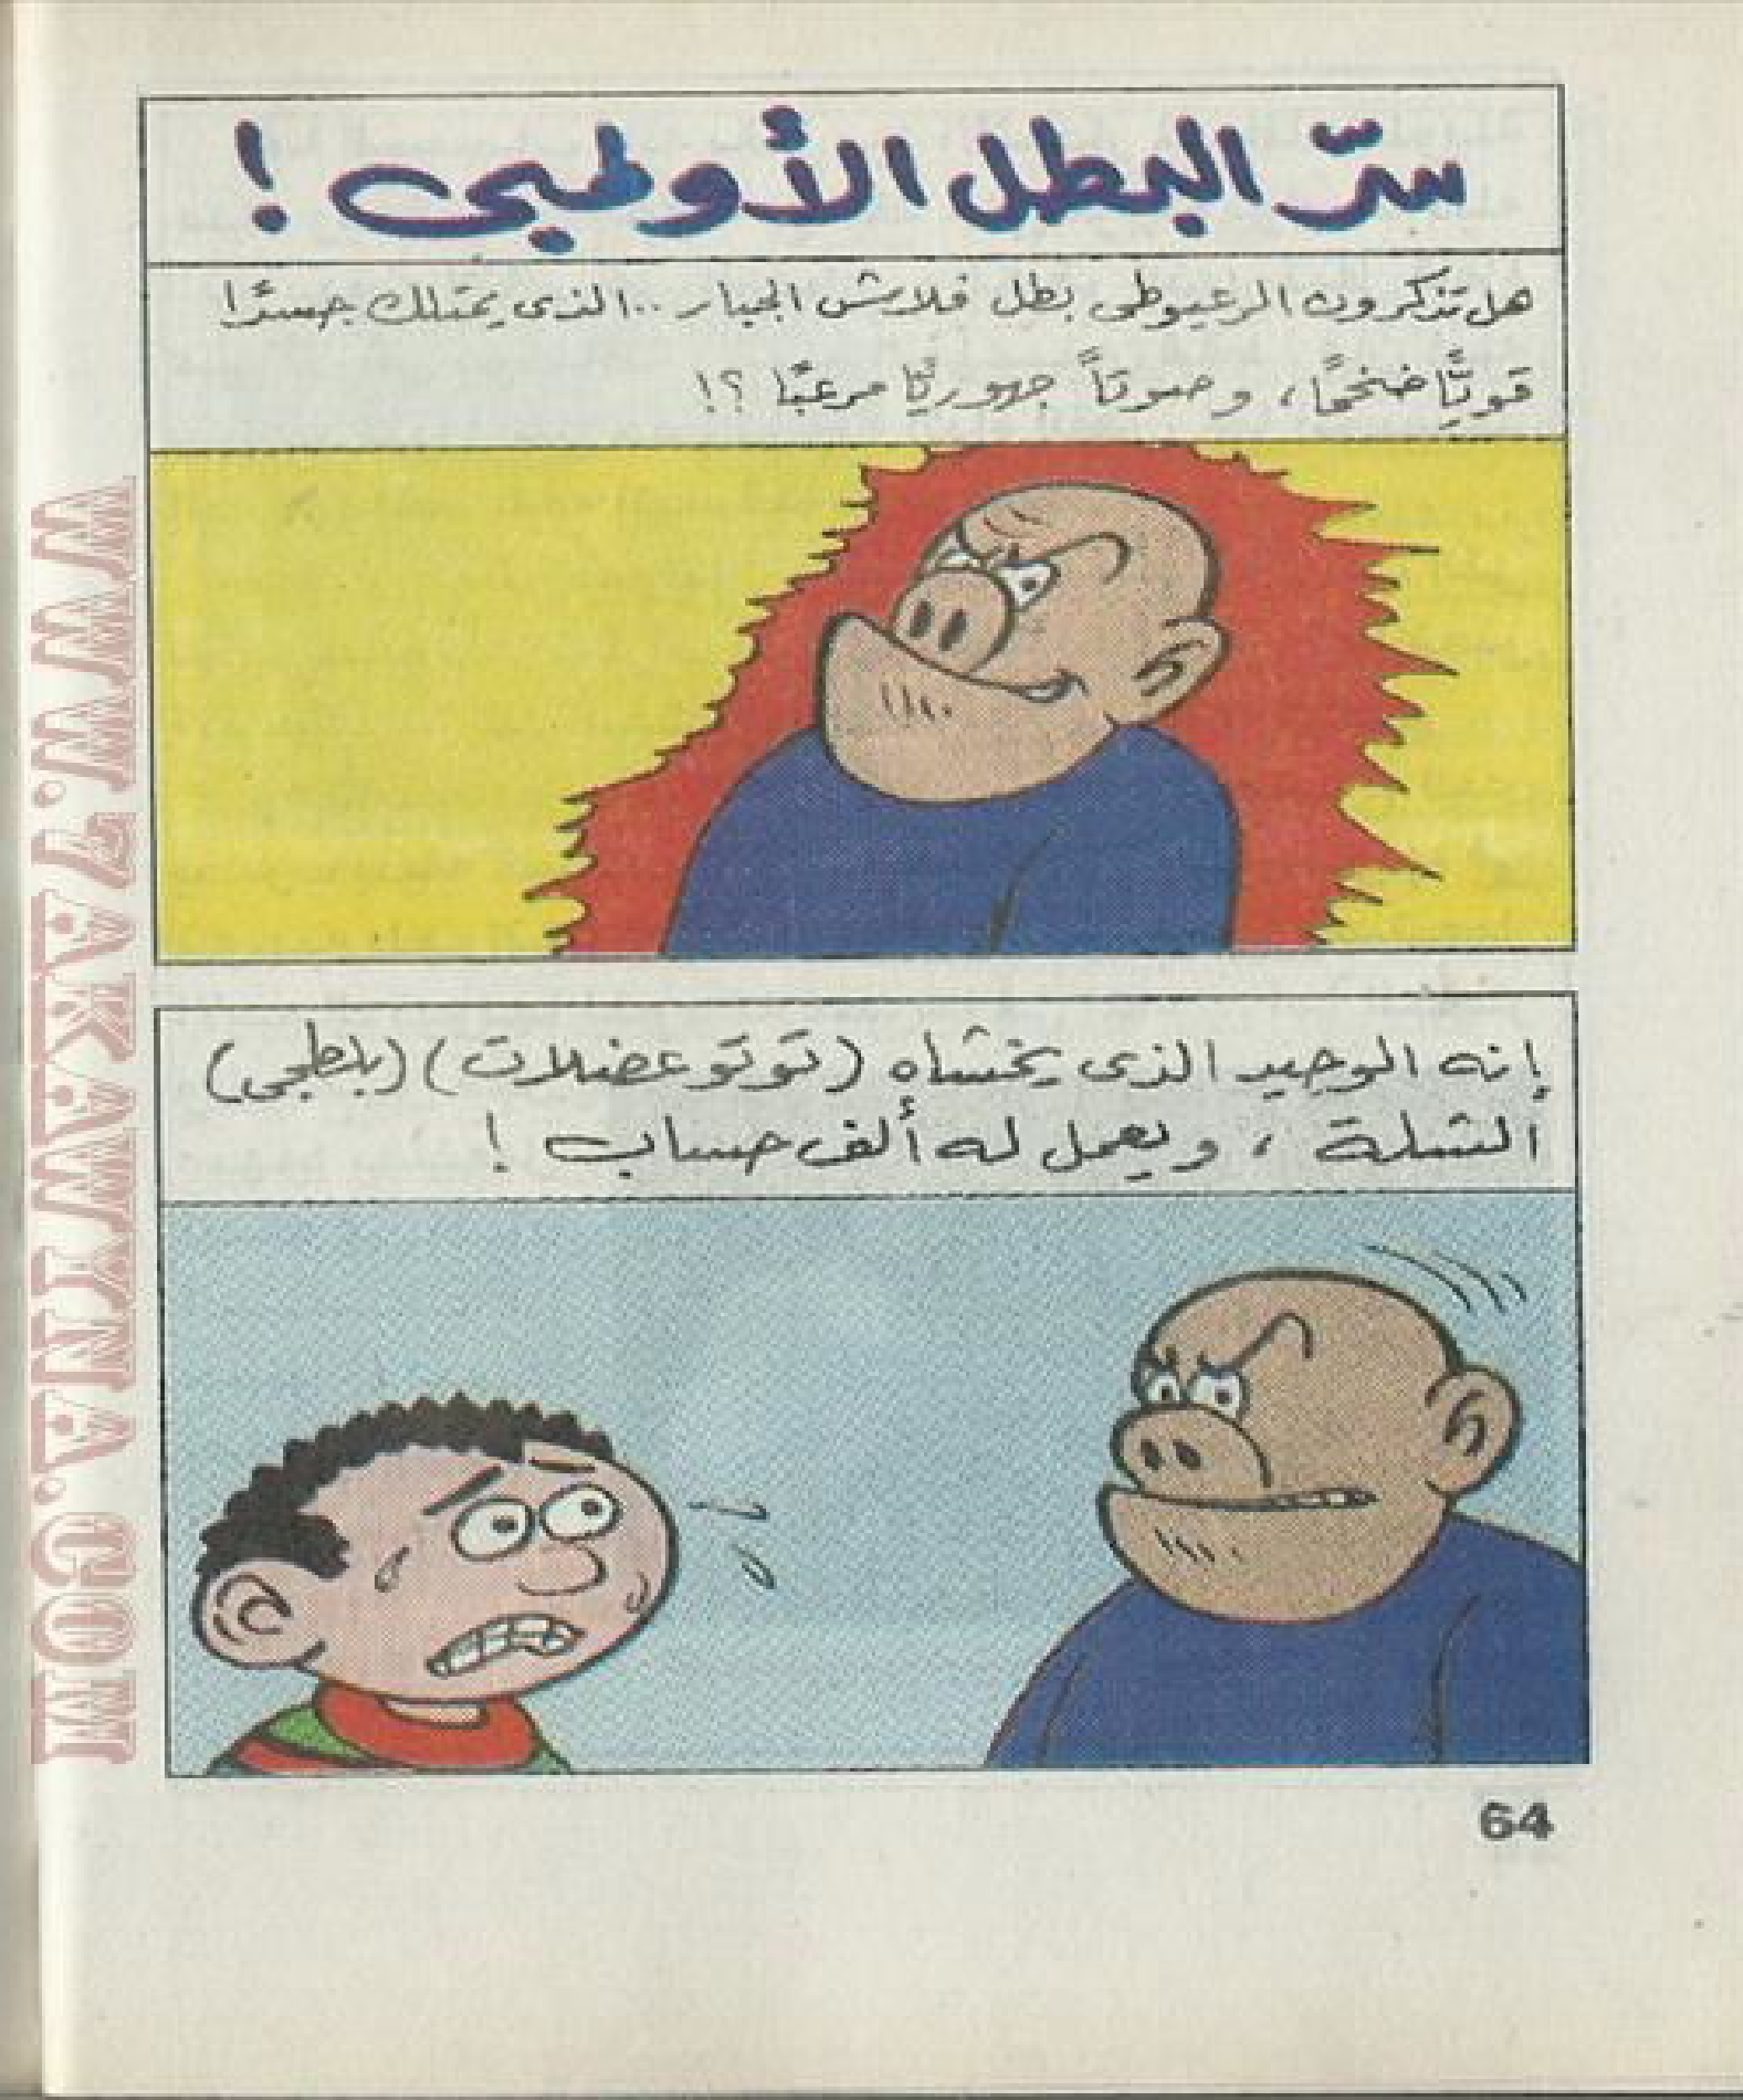 سرّ البطل الأوليمبى !
هل تذكرون الزعيوطى بطل فلاش الجبار ..الذى يمتلك جسدًا
قويًّا ضخمًا، وصوتاً جهوريًّا مرعبًا ؟!
إنه الوحيد الذى يخشاه (توتو عضلات) (بلطجى)
الشلة ، ويعمل له ألف حساب !
64
WWW.7AKAWINA.COM